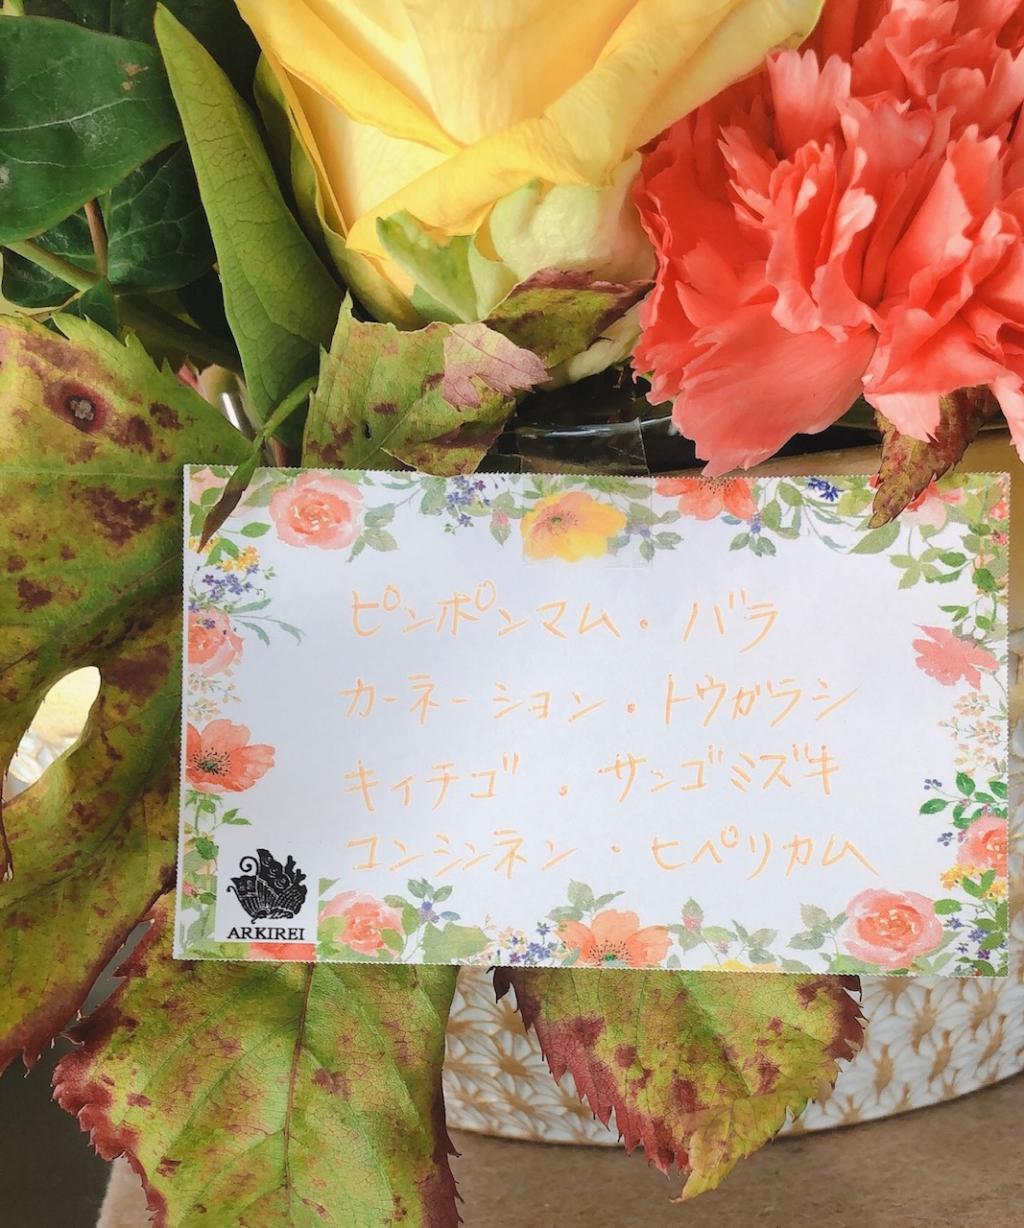 ピンポンマム・バラ
カーネーション・トウガラシ
キイチゴ・サンゴミズキ
コンシンネン・ヒペリカム
ARKIREI